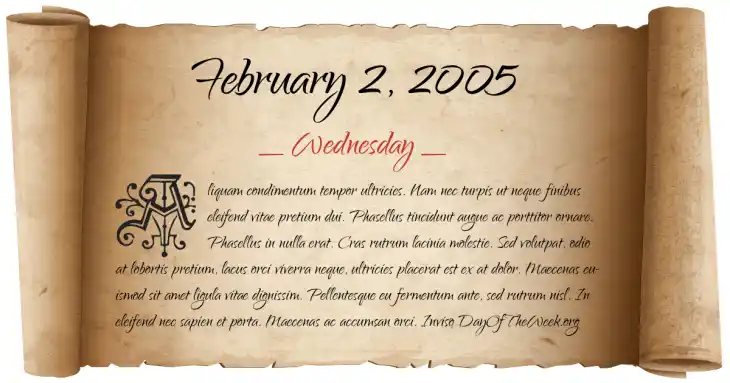 February 2, 2005
_ Wednesday _
Aliquam condimentum tempor ultricies. Nam nec turpis ut neque finibus
eleifend vitae pretium dui. Phasellus tincidunt augue ac porttitor ornare.
Phasellus in nulla erat. Cras rutrum lacinia molestie. Sed volutpat, odio
at lobortis pretium, lacus orci viverra neque, ultricies placerat est ex at dolor. Maecenas eu-
ismod sit amet ligula vitae dignissim. Pellentesque eu fermentum ante, sed rutrum nisl. In
eleifend nec sapien et porta. Maecenas ac accumsan orci. Inviso DayOfTheWeek.org